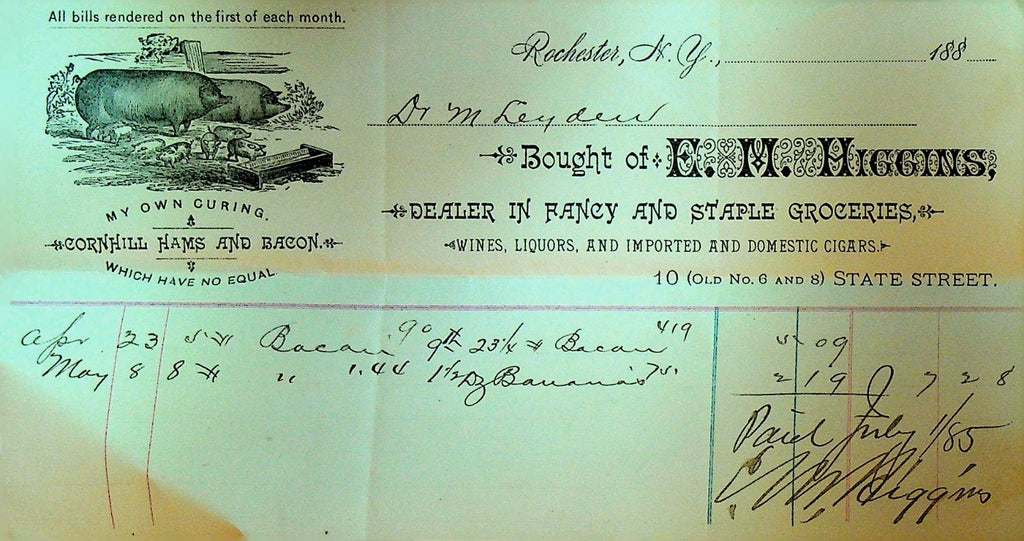 All bills rendered on the first of each month.
Rochester, N. Y., 188
Dr M Leyden
Bought of E. M. Higgins,
DEALER IN FANCY AND STAPLE GROCERIES,
WINES, LIQUORS, AND IMPORTED AND DOMESTIC CIGARS.
10 (OLD No. 6 AND 8) STATE STREET.
MY OWN CURING.
CORNHILL HAMS AND BACON.
WHICH HAVE NO EQUAL.
Apr 23 5 # Bacon 90 9th 23 1/4 # Bacon 419 5 09
May 8 8 # " 1.44 1 1/2 Dz Bananas 75 2 19 7 28
Paid July 1/85
E. M. Higgins